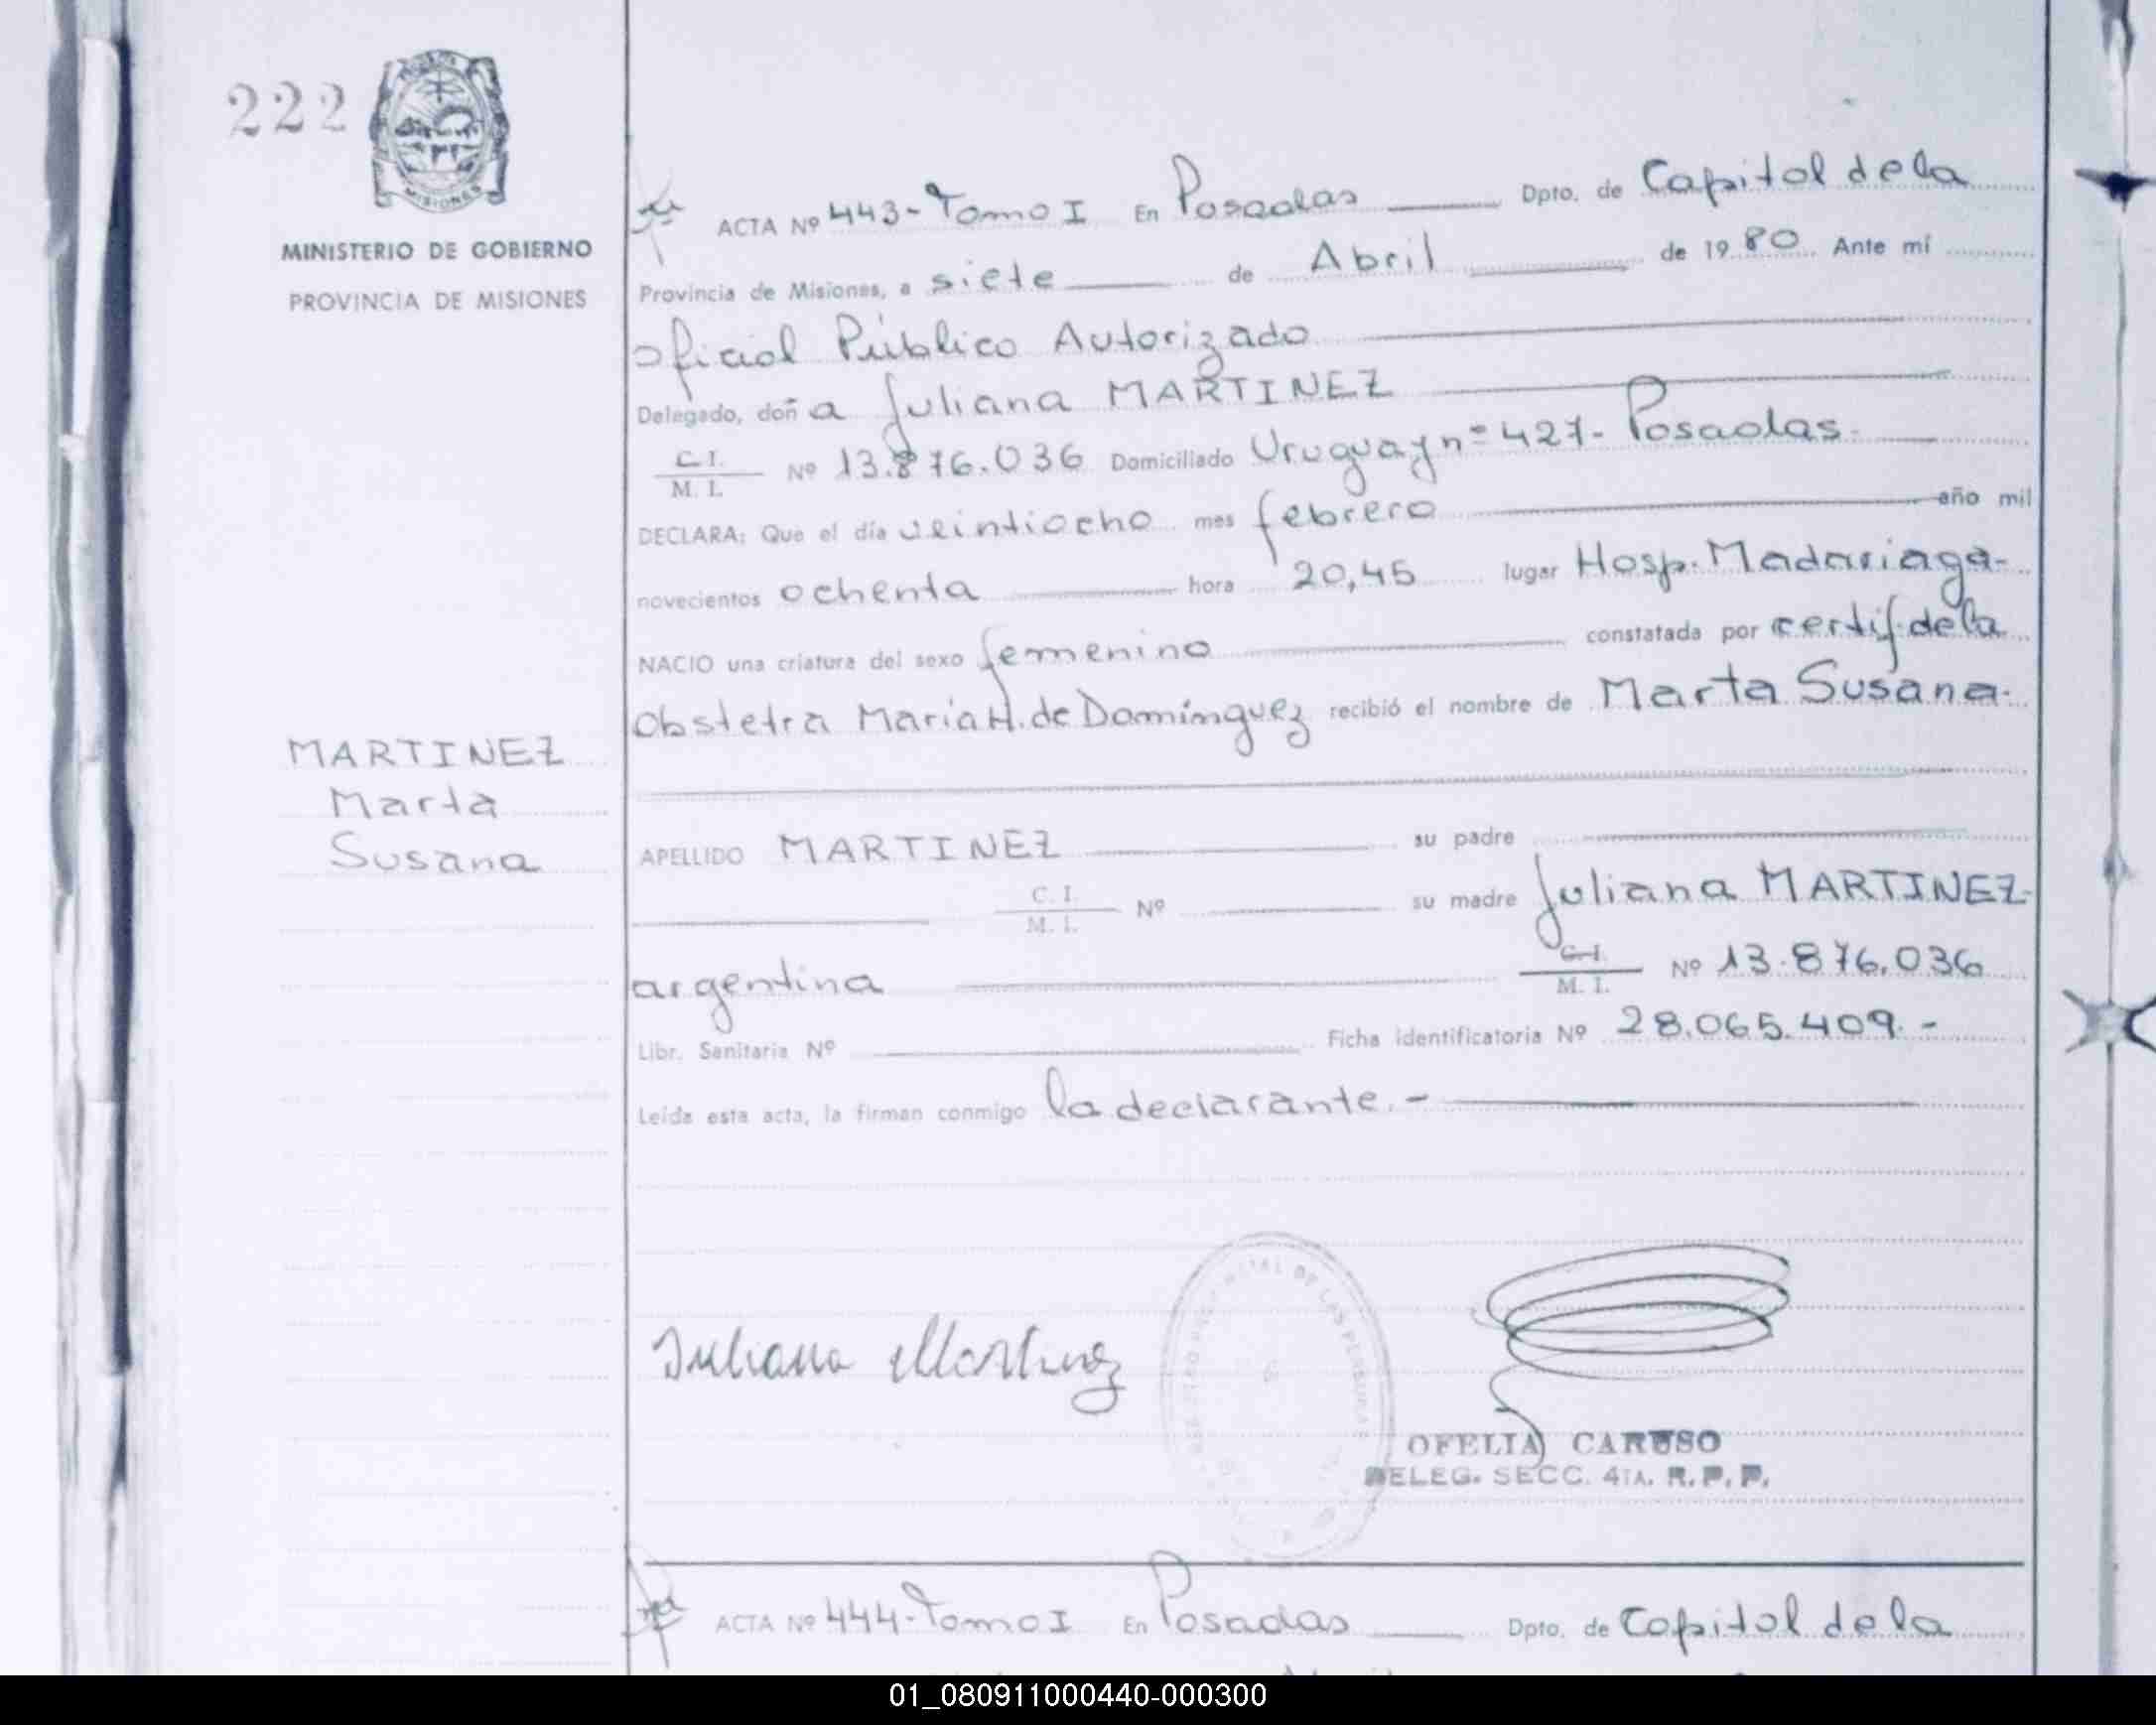 222
MISIONES
MINISTERIO DE GOBIERNO
PROVINCIA DE MISIONES
ACTA Nº 443- Tomo I En Posadas Dpto. de Capital de la
Provincia de Misiones, a siete de Abril de 1980 Ante mí
Oficial Público Autorizado
Delegado, doña Juliana MARTINEZ
C.I. / M.I. Nº 13.876.036 Domiciliado Uruguay nº 427- Posadas.
DECLARA: Que el día veintiocho mes febrero año mil
novecientos ochenta hora 20,45 lugar Hosp. Madariaga-
NACIO una criatura del sexo femenino constatada por certif. de la
Obstetra Maria H. de Domínguez recibió el nombre de Marta Susana.
MARTINEZ
Marta
Susana
APELLIDO MARTINEZ su padre
C. I. / M. I. Nº su madre Juliana MARTINEZ-
argentina C.I. / M. I. Nº 13.876.036
Libr. Sanitaria Nº Ficha identificatoria Nº 28.065.409.-
Leída esta acta, la firman conmigo la declarante.-
Juliana Martinez
DE LAS PERSONAS
OFELIA CARUSO
DELEG. SECC. 4TA. R. P. P.
ACTA Nº 444- Tomo I En Posadas Dpto. de Capital de la
01_080911000440-000300